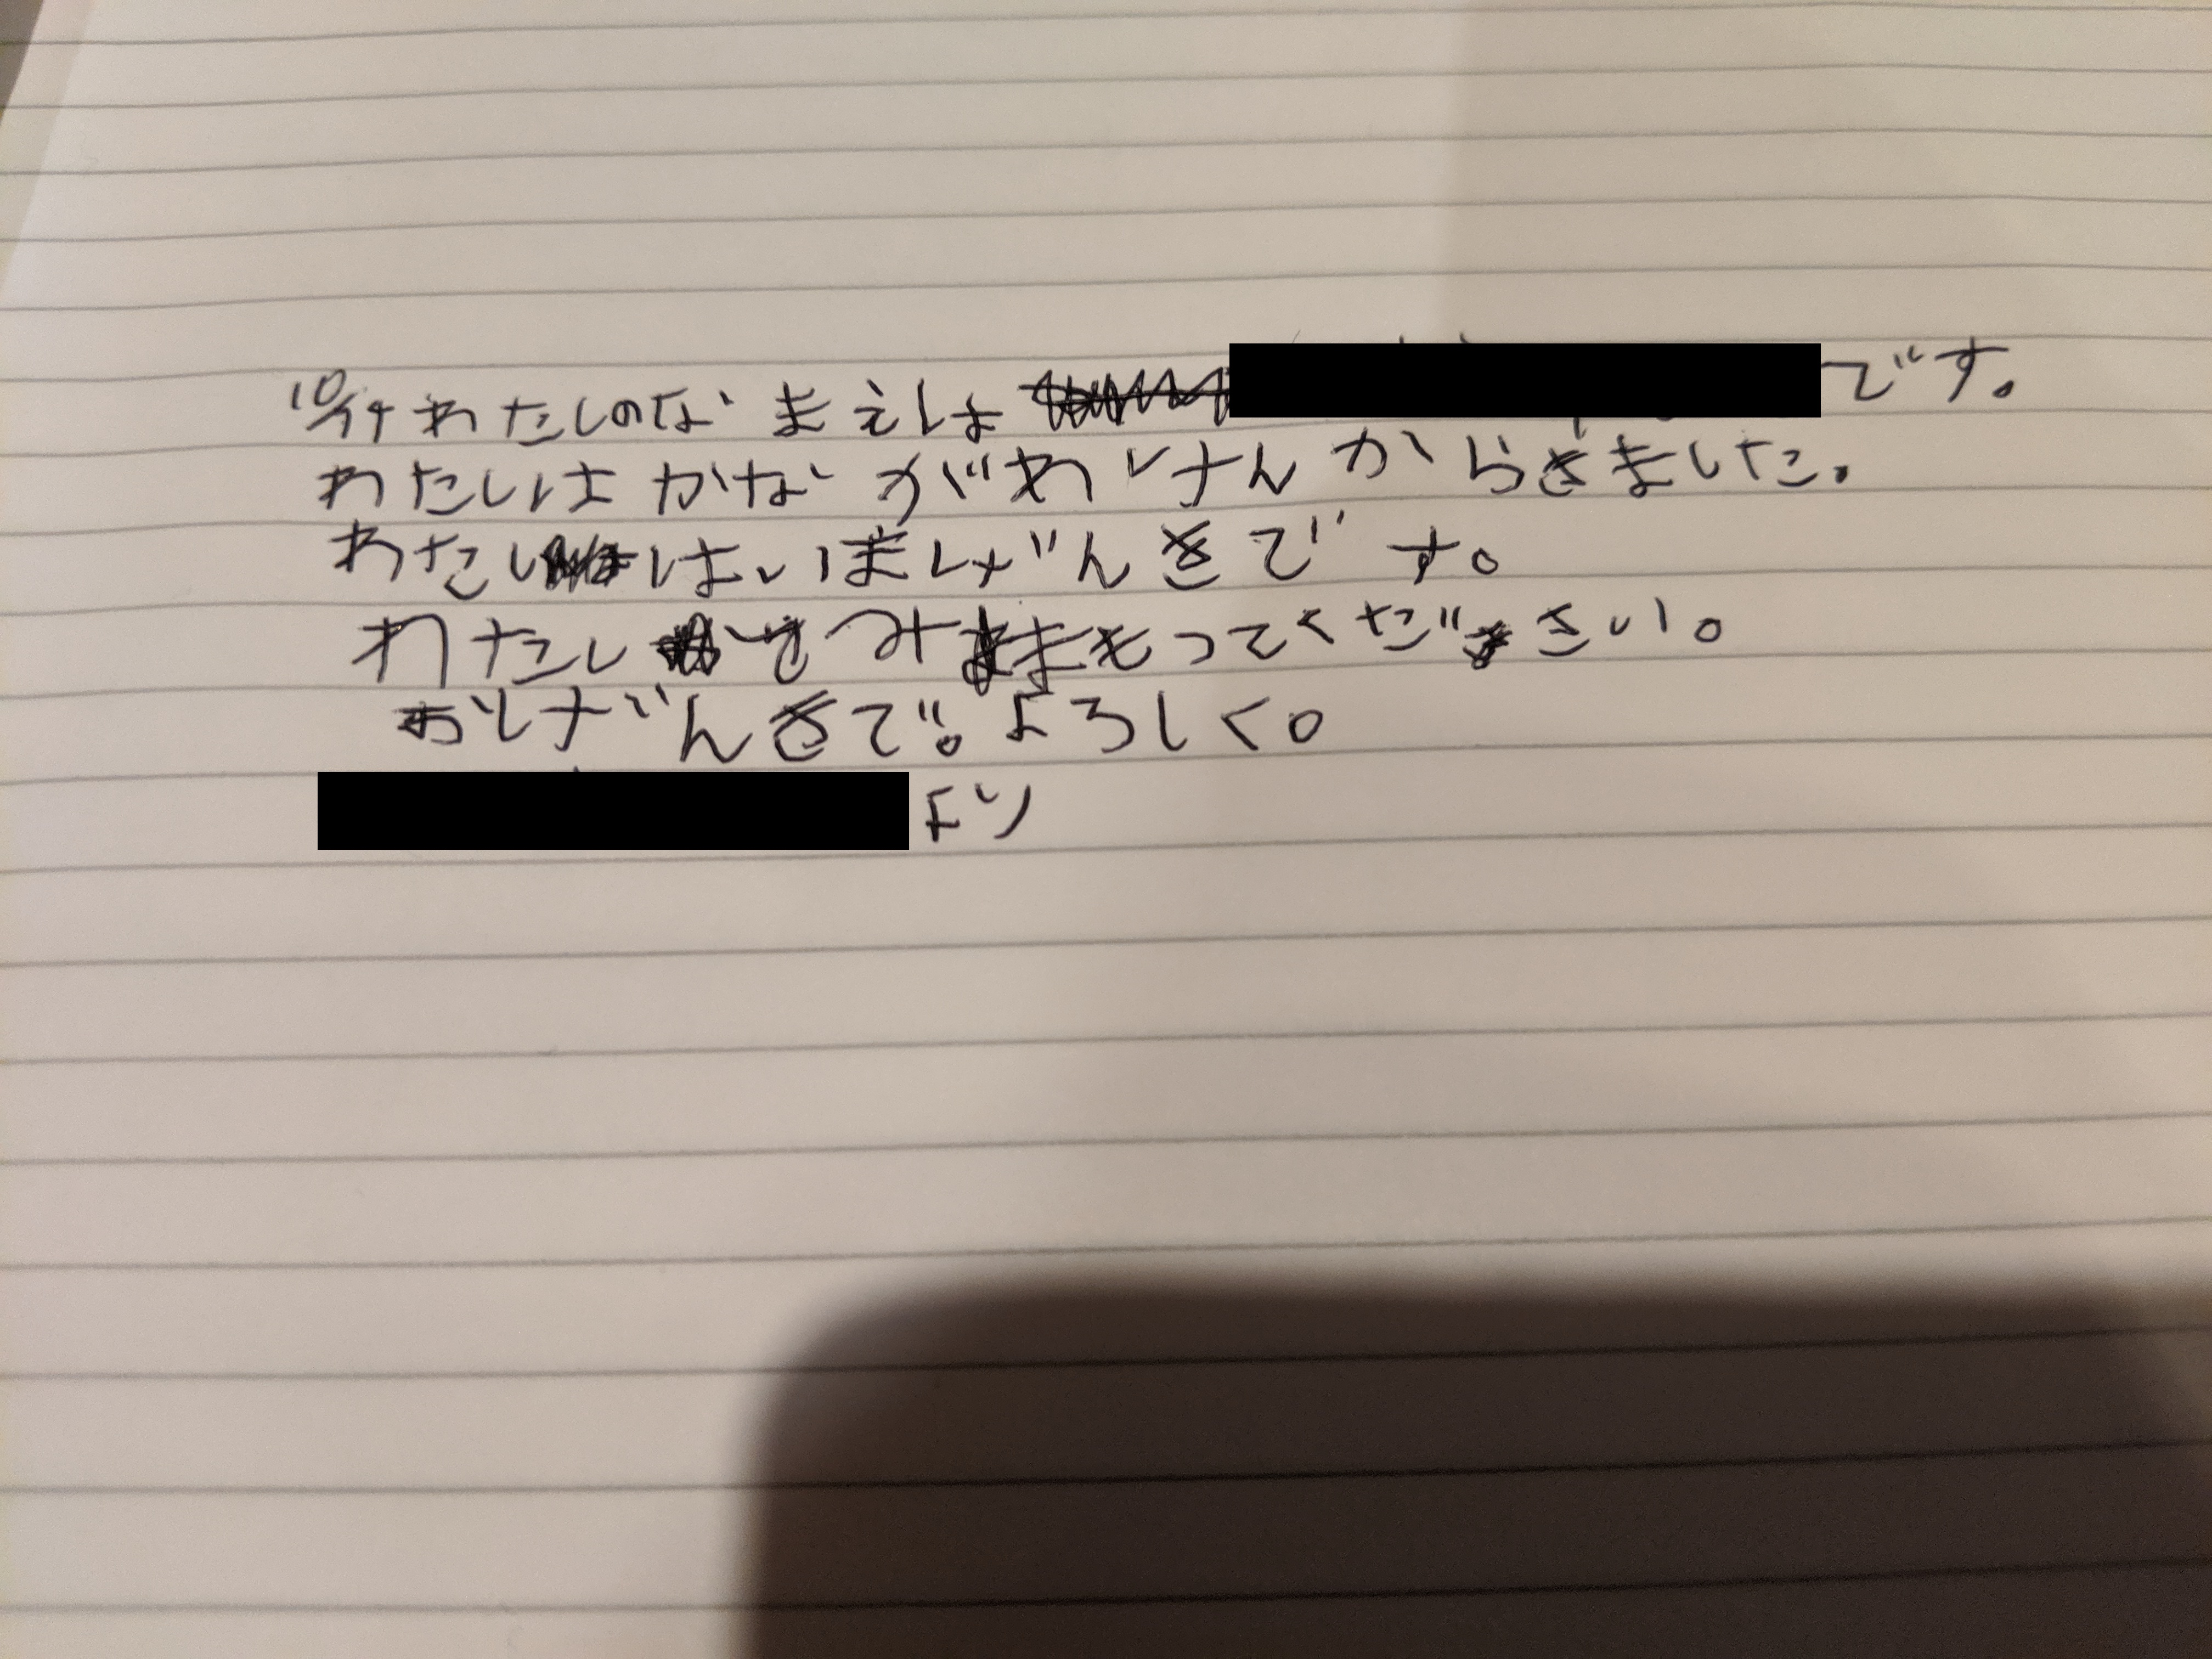 10/14 わたしのなまえは です。
わたしはかながわけんからきました。
わたしはいまげんきです。
わたしをみまもってください。
おげんきで。よろしく。
より